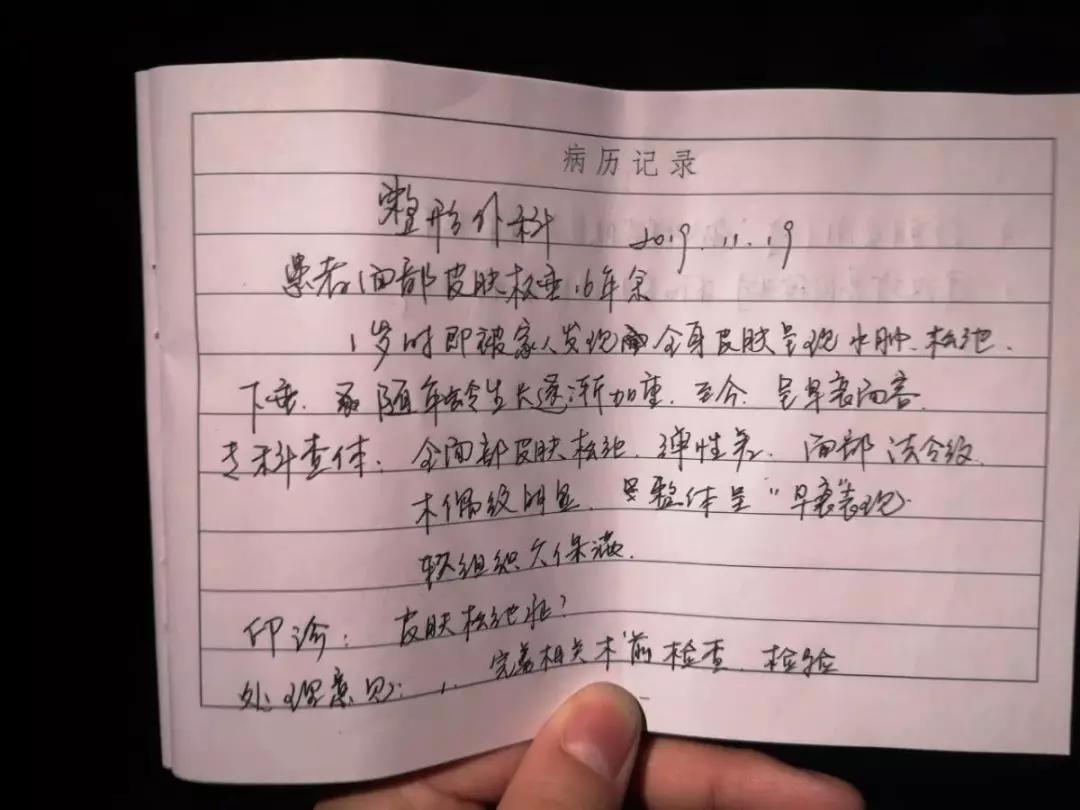 病历记录
整形外科 2019.11.19
患者面部皮肤松垂16年余
1岁时即被家人发现全身皮肤呈现水肿、松弛、
下垂、随年龄生长逐渐加重、至今呈早衰面容。
专科查体：全面部皮肤松弛、弹性差、面部法令纹、
木偶纹明显、整体呈"早衰"表现
软组织欠保满、
印诊：皮肤松弛症？
处理意见：1、完善相关术前检查、检验